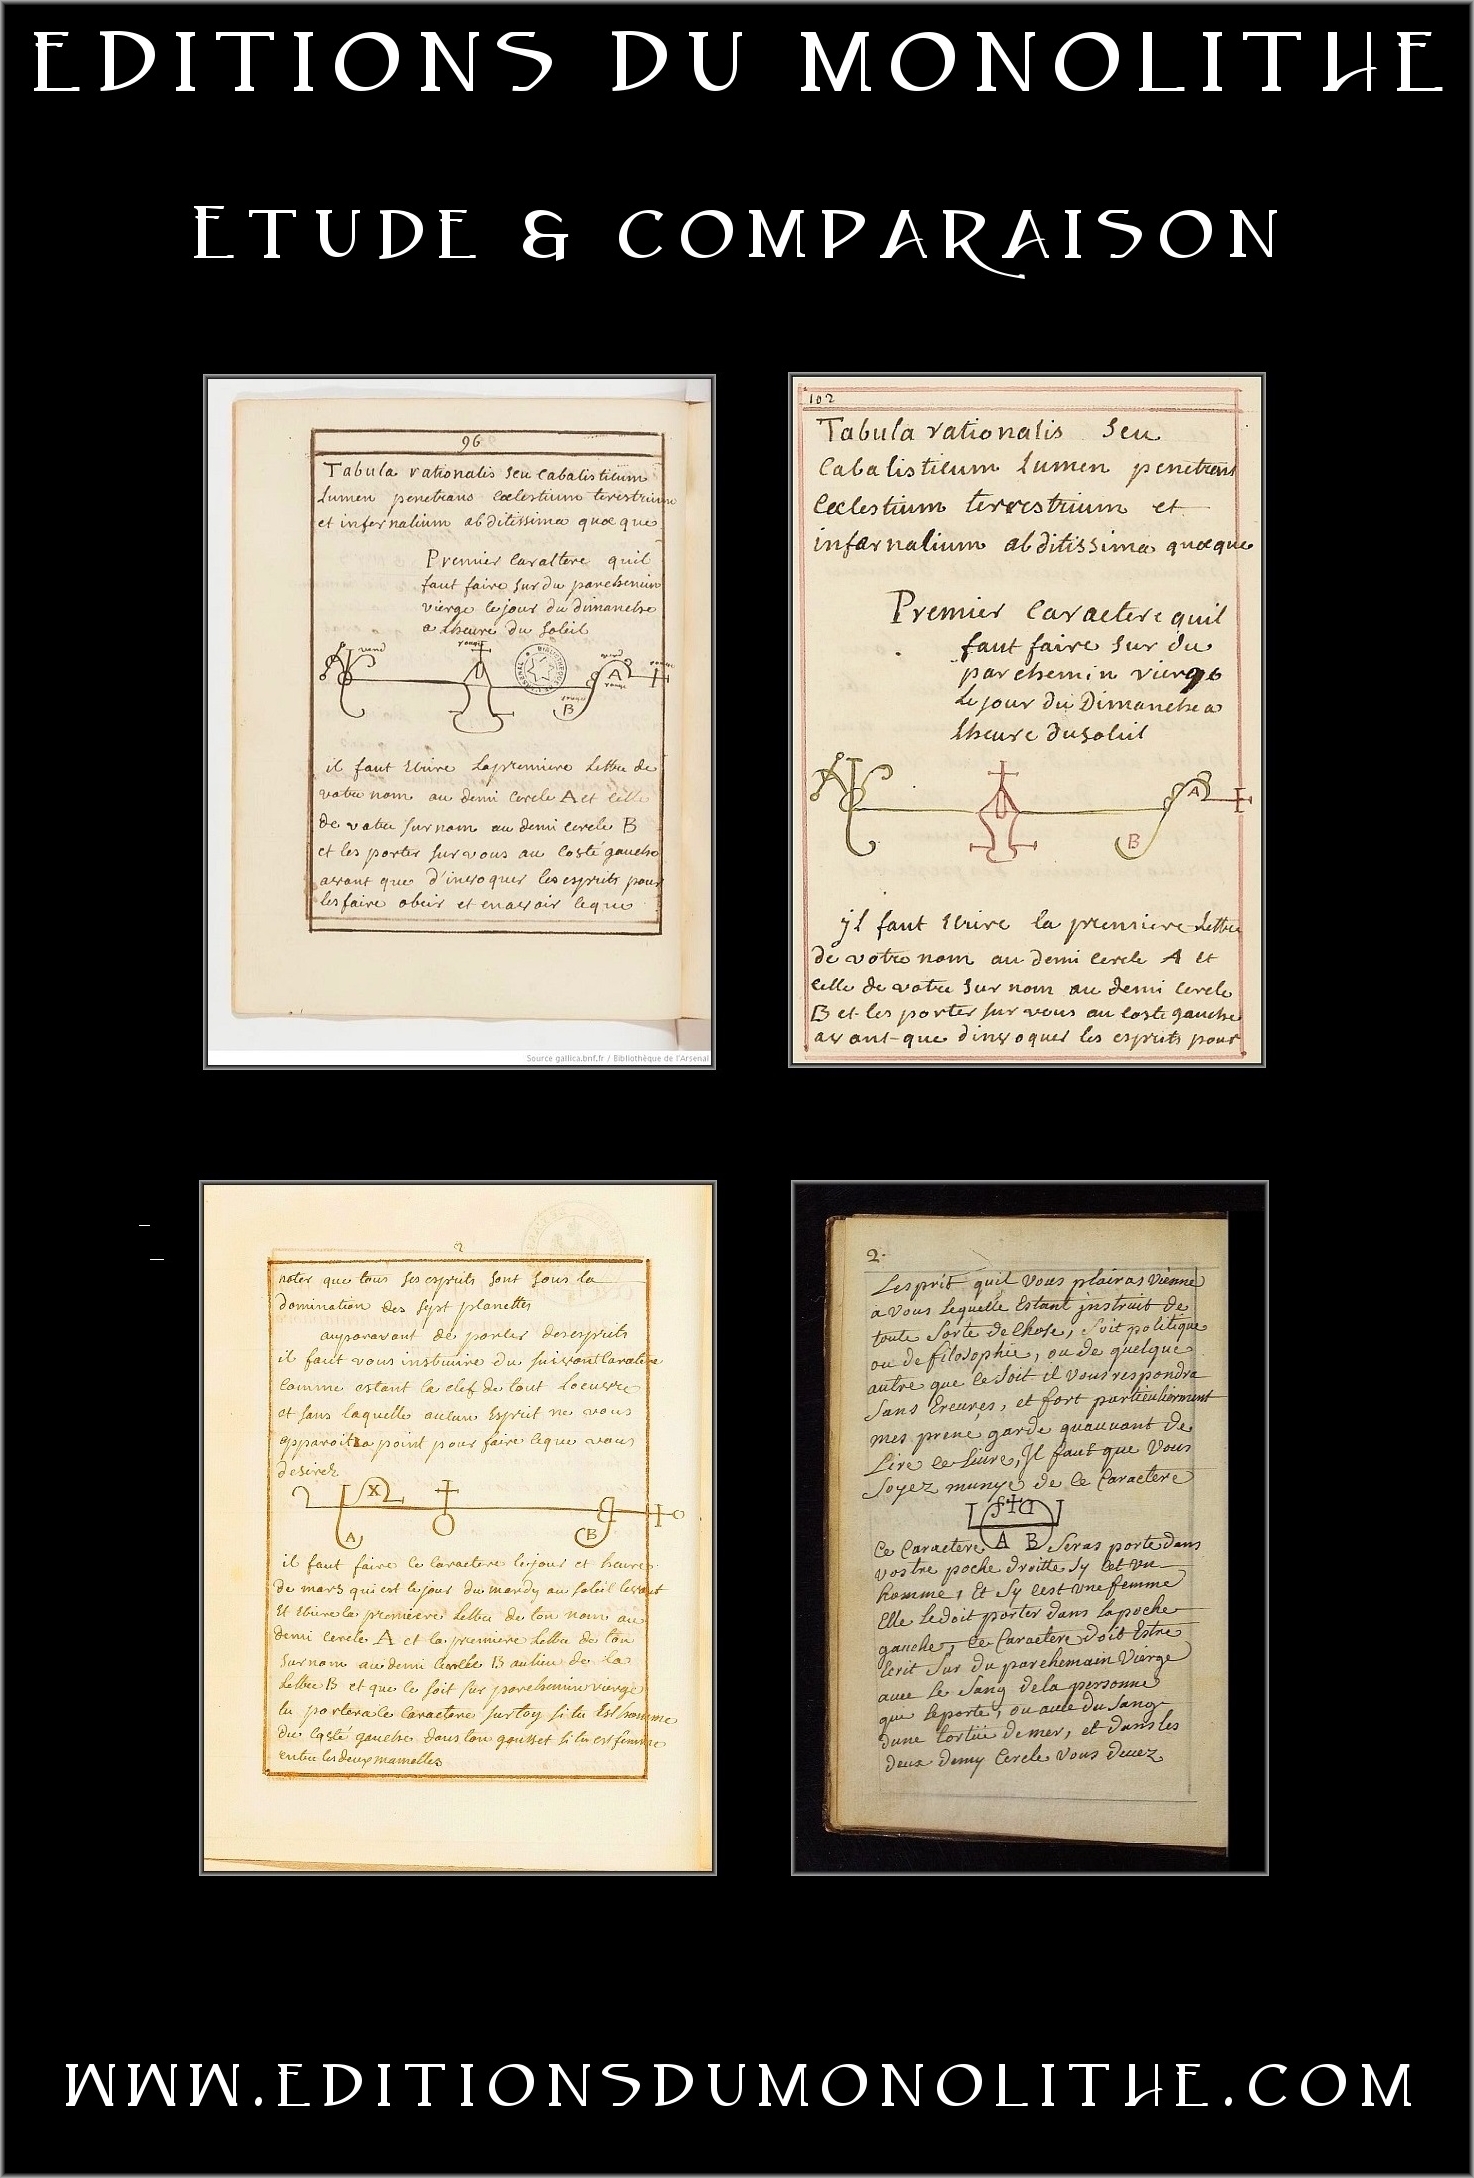 EDITIONS DU MONOLITHE
ETUDE & COMPARAISON
96
Tabula rationalis seu Cabalisticum
Lumen penetrans Cœlestium terestrium
et infernalium abditissima quæque
Premier Caractere quil
faut faire sur du parchemin
vierge le jour du dimanche
a Lheure du soleil
verd
rouge
verd
rouge
A
rouge
rouge
B
il faut Ecrire la premiere Lettre de
votre nom au demi Cercle A et Celle
de votre surnom au demi Cercle B
et les porter sur vous au Costé gauche
avant que d'invoquer les esprits pour
les faire obeir et en avoir ce que
Source gallica.bnf.fr / Bibliothèque de l'Arsenal
102
Tabula rationalis Seu
Cabalisticum Lumen penetrans
Cœlestium terrestrium et
infernalium abditissima quæque
Premier Caractere quil
faut faire sur du
parchemin vierge
le jour du Dimanche a
Lheure du soleil
A
B
jl faut Ecrire la premiere Lettre
de votre nom au demi Cercle A et
Celle de votre sur nom au demi Cercle
B et les porter sur vous au Coste gauche
avant que dinvoquer les esprits pour
2
noter que tous ses esprits sont sous la
domination des sept planettes
auparavant de parler des esprits
il faut vous instruire du suivant Caractere
Comme estant la clef de tout Loeuvre
et sans laquelle aucun Esprit ne vous
apparoitra point pour faire ce que vous
desirez
X
A
B
il faut faire ce Caractere le jour et heure
de mars qui est le jour du mardy au soleil levant
Et Ecrire la premiere Lettre de ton nom au
demi Cercle A et la premiere Lettre de ton
surnom au demi Cercle B au lieu de la
Lettre B et que ce soit sur parchemin vierge
tu portera ce Caractere sur toy si tu Est homme
du Costé gauche dans ton gousset si tu est femme
entre les deux mamelles
2.
Lesprit quil vous plairas vienne
a vous Lequelle Estant jnstruit de
toute sorte de Chose, soit politique
ou de filosophie, ou de quelque
autre que ce soit il vous respondra
sans Ereures, et fort particulierment
mes prene garde quauvant de
Lire ce Livre, Jl faut que vous
soyez munye de ce Caractere
A B
Ce Caractere Seras porte dans
vostre poche droitte sy cet un
homme, Et sy cest une femme
Elle Le doit porter dans la poche
gauche, Ce Caractere doit Estre
Ecrit sur du parchemain Vierge
avec Le Sang de la personne
qui le porte, ou avec du Sang
dune tortüe de mer, et dans les
deux demy Cercle Vous devez
WWW.EDITIONSDUMONOLITHE.COM